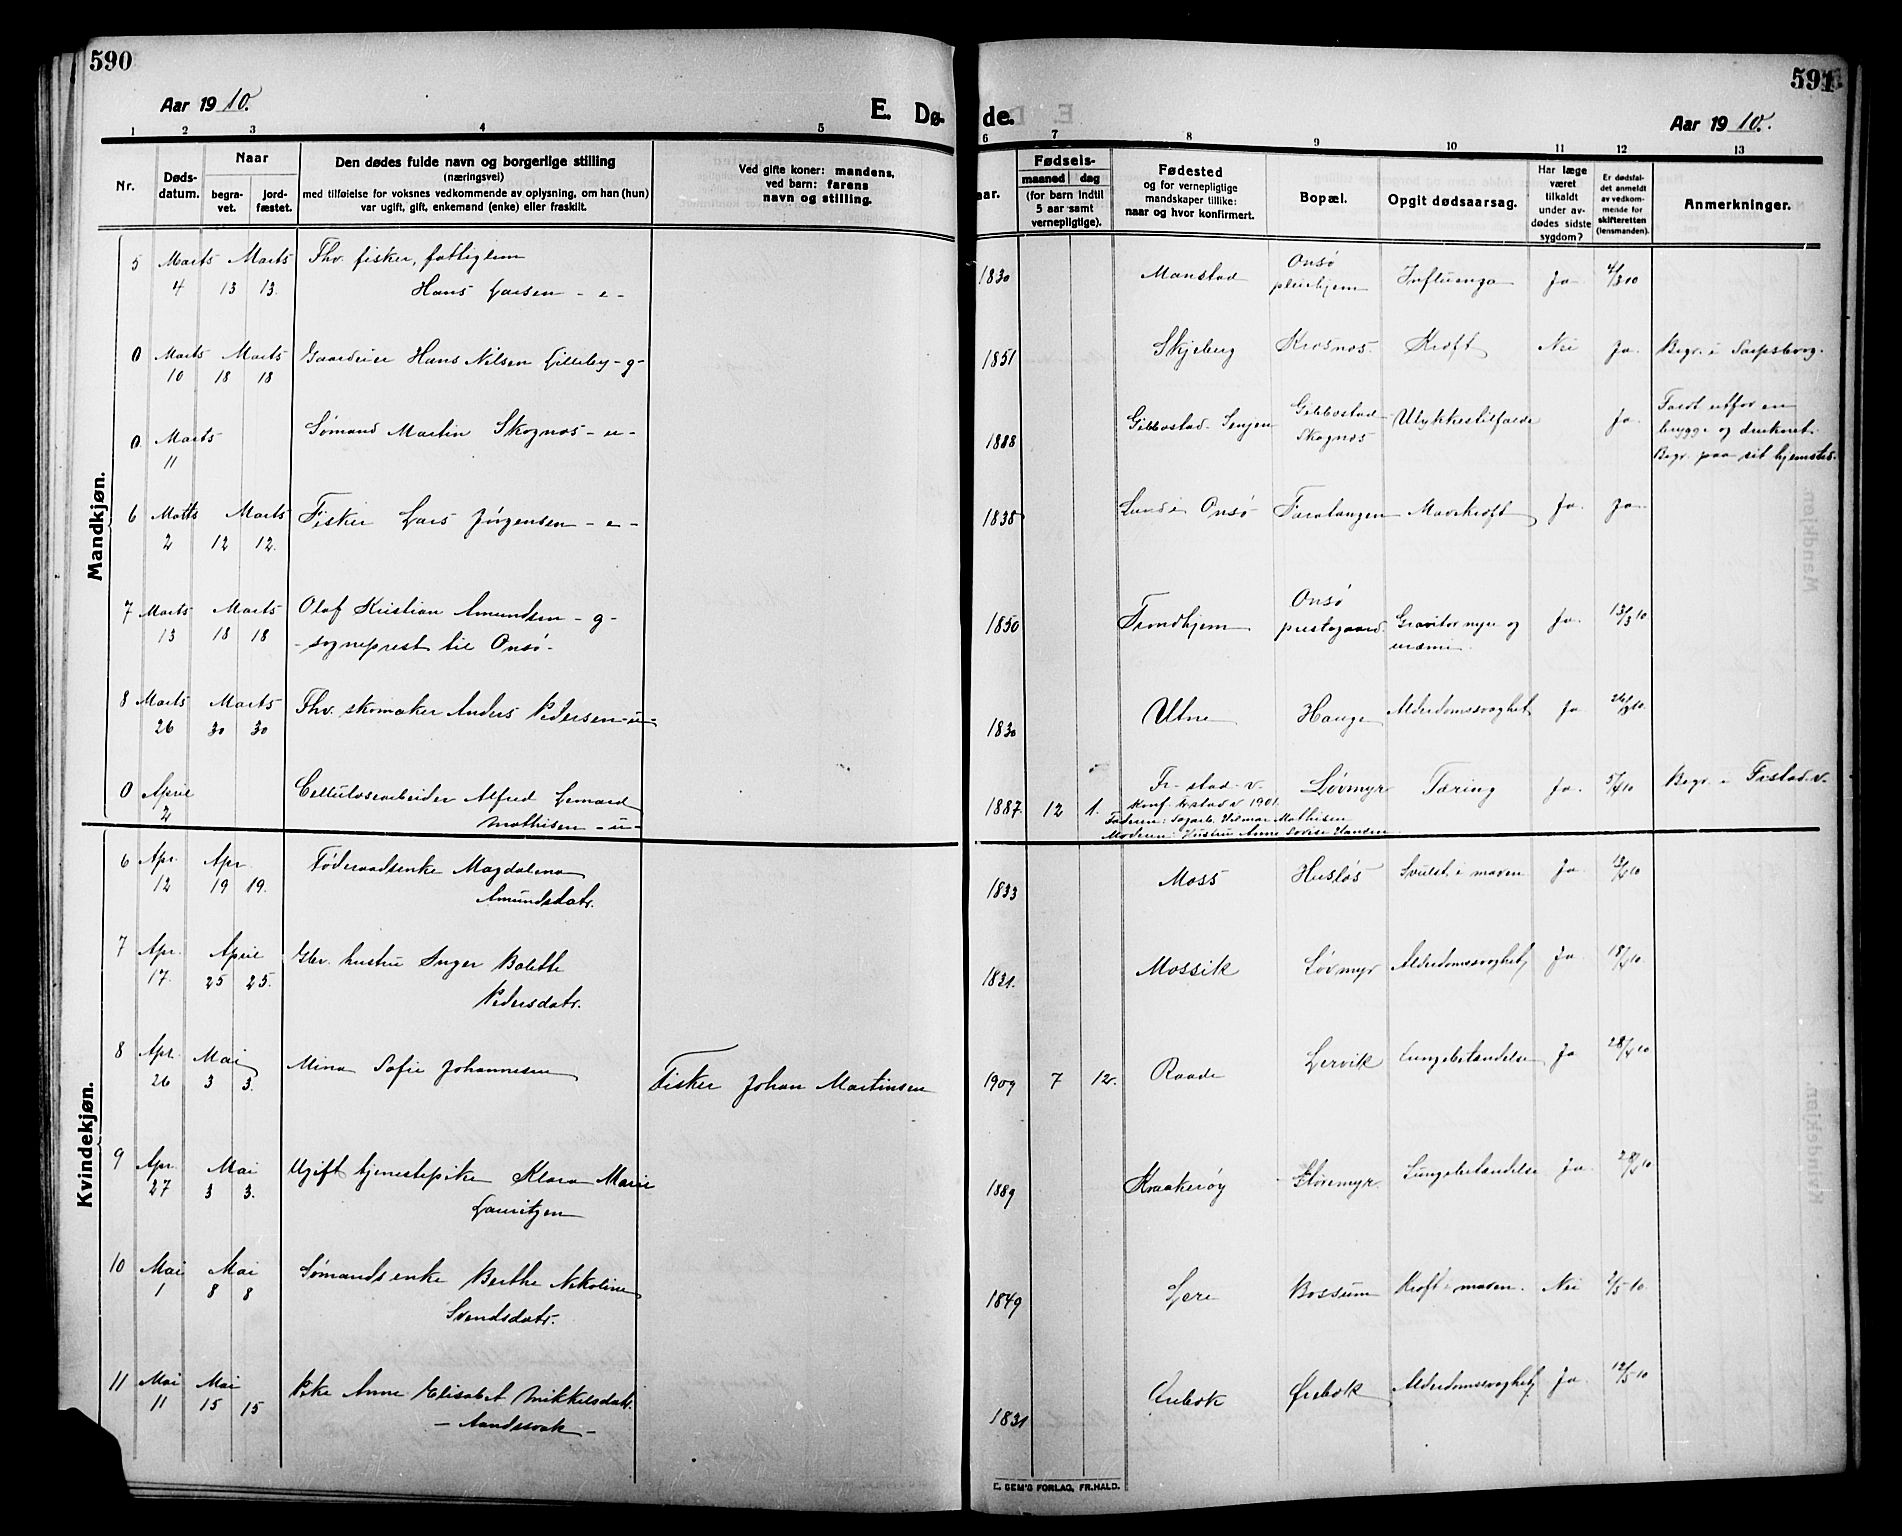 590
591
Aar 1910.
E. Dø-
de.
Aar 1910.
1 2 3 4 5 6 7 8 9 10 11 12 13
Nr.
Døds-
datum.
Naar
begra-
vet.
jord-
fæstet.
Den dødes fulde navn og borgerlige stilling
(næringsvei)
med tilføielse for voksnes vedkommende av oplysning, om han (hun)
var ugift, gift, enkemand (enke) eller fraskilt.
Ved gifte koner: mandens,
ved barn: farens
navn og stilling.
aar.
Fødsels-
maaned dag
(for barn indtil
5 aar samt
vernepligtige).
Fødested
og for vernepligtige
mandskaper tillike:
naar og hvor konfirmert.
Bopæl.
Opgit dødsaarsag.
Har læge
været
tilkaldt
under av-
dødes sidste
sygdom?
Er dødsfal-
det anmeldt
av vedkom-
mende for
skifteretten
(lensmanden).
Anmerkninger.
Mandkjøn.
5 Marts Marts Thv. fisker, fattiglem Onsø
4 13 13. Hans Larsen - e - 1830 Manstad pleiehjem Influenza Ja 4/3 10
0 Marts Marts Gaardeier Hans Nilsen Lilleby - g - 1851 Skjeberg Krosnæs. Kræft Nei Ja. Begr. i Sarpsborg.
10 18 18
0 Marts Sømand Martin Skognæs - u - 1888 Gibbostad. Senjen Gibbostad Ulykkestilfælde Ja. Faldt utfor en
11 Skognæs brygge og druknet.
Begr. paa sit hjemsted.
6 Marts Marts Fisker Lars Jørgensen - e - 1838 Lunde i Onsø Faratangen Mavekræft Ja Ja
2 12 12.
7 Marts Marts Olaf Kristian Amundsen - g - 1850 Trondhjem Onsø
13 18 18 - sogneprest til Onsø - prestegaard. nyre og Ja. 13/3 10
uræmi.
8 Marts Marts Thv. skomaker Anders Pedersen - u - 1830 Utne Hauge Alderdomssvaghet Ja 26/3 10.
26 30 30
0 April Cellulosearbeider Alfred Lenard 1887. 12 1. Fr-stad. v. Løvmyr Tæring Ja. 5/4 10 Begr. i Fr.stad. v.
2 Mathisen - u - Konf. Fr.stad v 1901.
Faderen: Sagarb. Hilmar Mathisen
Moderen: Hustru Anne Lovise Hansen
Kvindekjøn.
6 Apr. Apr. Føderaadsenke Magdalena 1833 Moss Husløs Svulst i maven Ja 13/4 10
12 19 19. Amundsdatr.
7 Apr. April Gbr. hustru Inger Bolette 1831. Mossik Løvmyr Alderdomssvaghet Ja. 18/4 10
17. 25 25. Pedersdatr.
8 Apr. Mai Mina Sofie Johannesen Fisker Johan Martinsen 1909 7 12. Raade Lervik Lungebetændelse Ja 28/4 10
26 3 3.
9 Apr. Mai Ugift tjenestepike Klara Marie 1889 Kraakerøy Løvmyr. Lungebetændelse Ja. 28/4 10
27 3 3. Lauritzen
10 Mai Mai Sømandsenke Berthe Nikoline 1849 Lere Bossum Kræft i maven. Nei 2/5 10.
1 8 8 Svendsdatr.
11 Mai Mai Pike Anne Elisabet Mikkelsdatr. 1831 Ørebæk Ørebæk Alderdomssvaghet Ja. 12/5 10
11 15 15 - Aandssvak -
E. SEM'S FORLAG, FR.HALD.